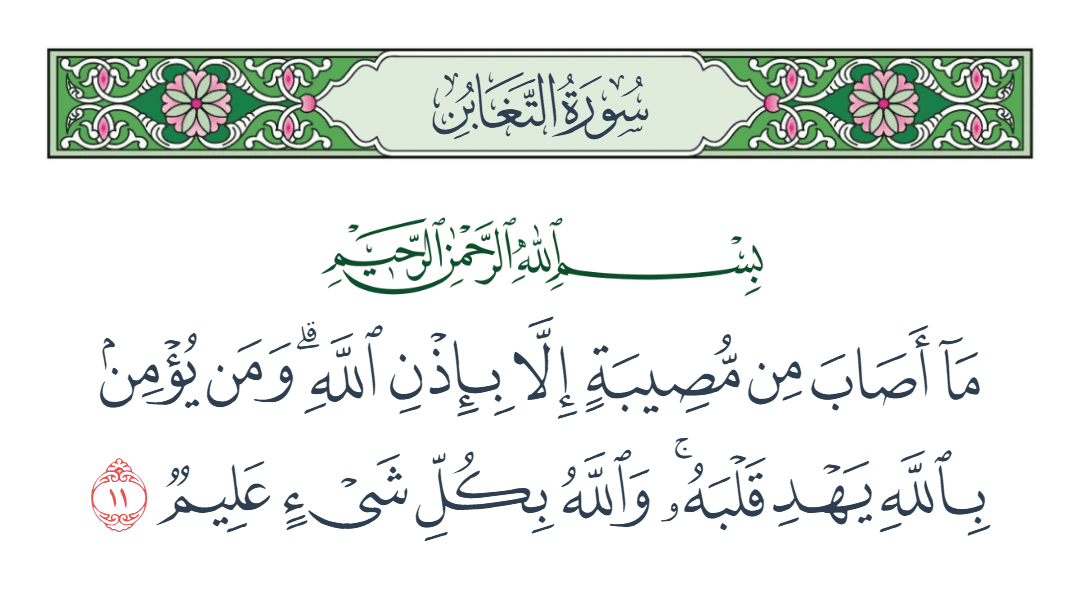 سُورَةُ التَّغَابُنِ
بِسْمِ ٱللَّهِ ٱلرَّحْمَٰنِ ٱلرَّحِيمِ
مَآ أَصَابَ مِن مُّصِيبَةٍ إِلَّا بِإِذْنِ ٱللَّهِ ۗ وَمَن يُؤْمِنۢ
بِٱللَّهِ يَهْدِ قَلْبَهُۥ ۚ وَٱللَّهُ بِكُلِّ شَىْءٍ عَلِيمٌ ١١